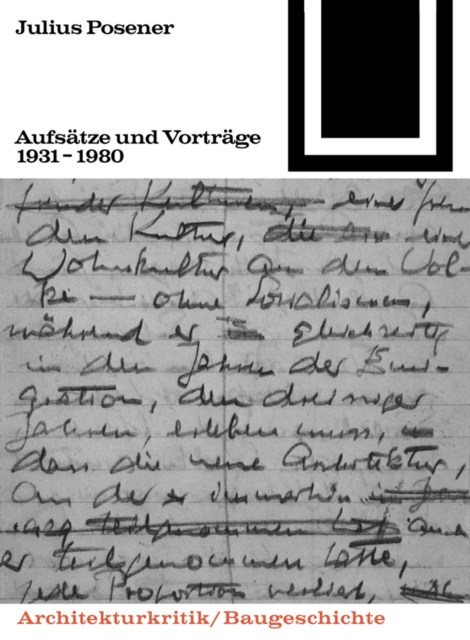 Julius Posener
Aufsätze und Vorträge
1931 – 1980
fremder Kulturen, einer frem
den Kultur, die eine
Wohnkultur an dem Vol-
ke — ohne Sozialismus,
während er gleichzeitig
in den Jahren der Emi-
gration, den dreissiger
Jahren, erleben muss,
dass die neue Architektur,
an der er immerhin
1929 teilgenommen auch
er teilgenommen hatte,
jede Proportion verliert,
Architekturkritik/Baugeschichte